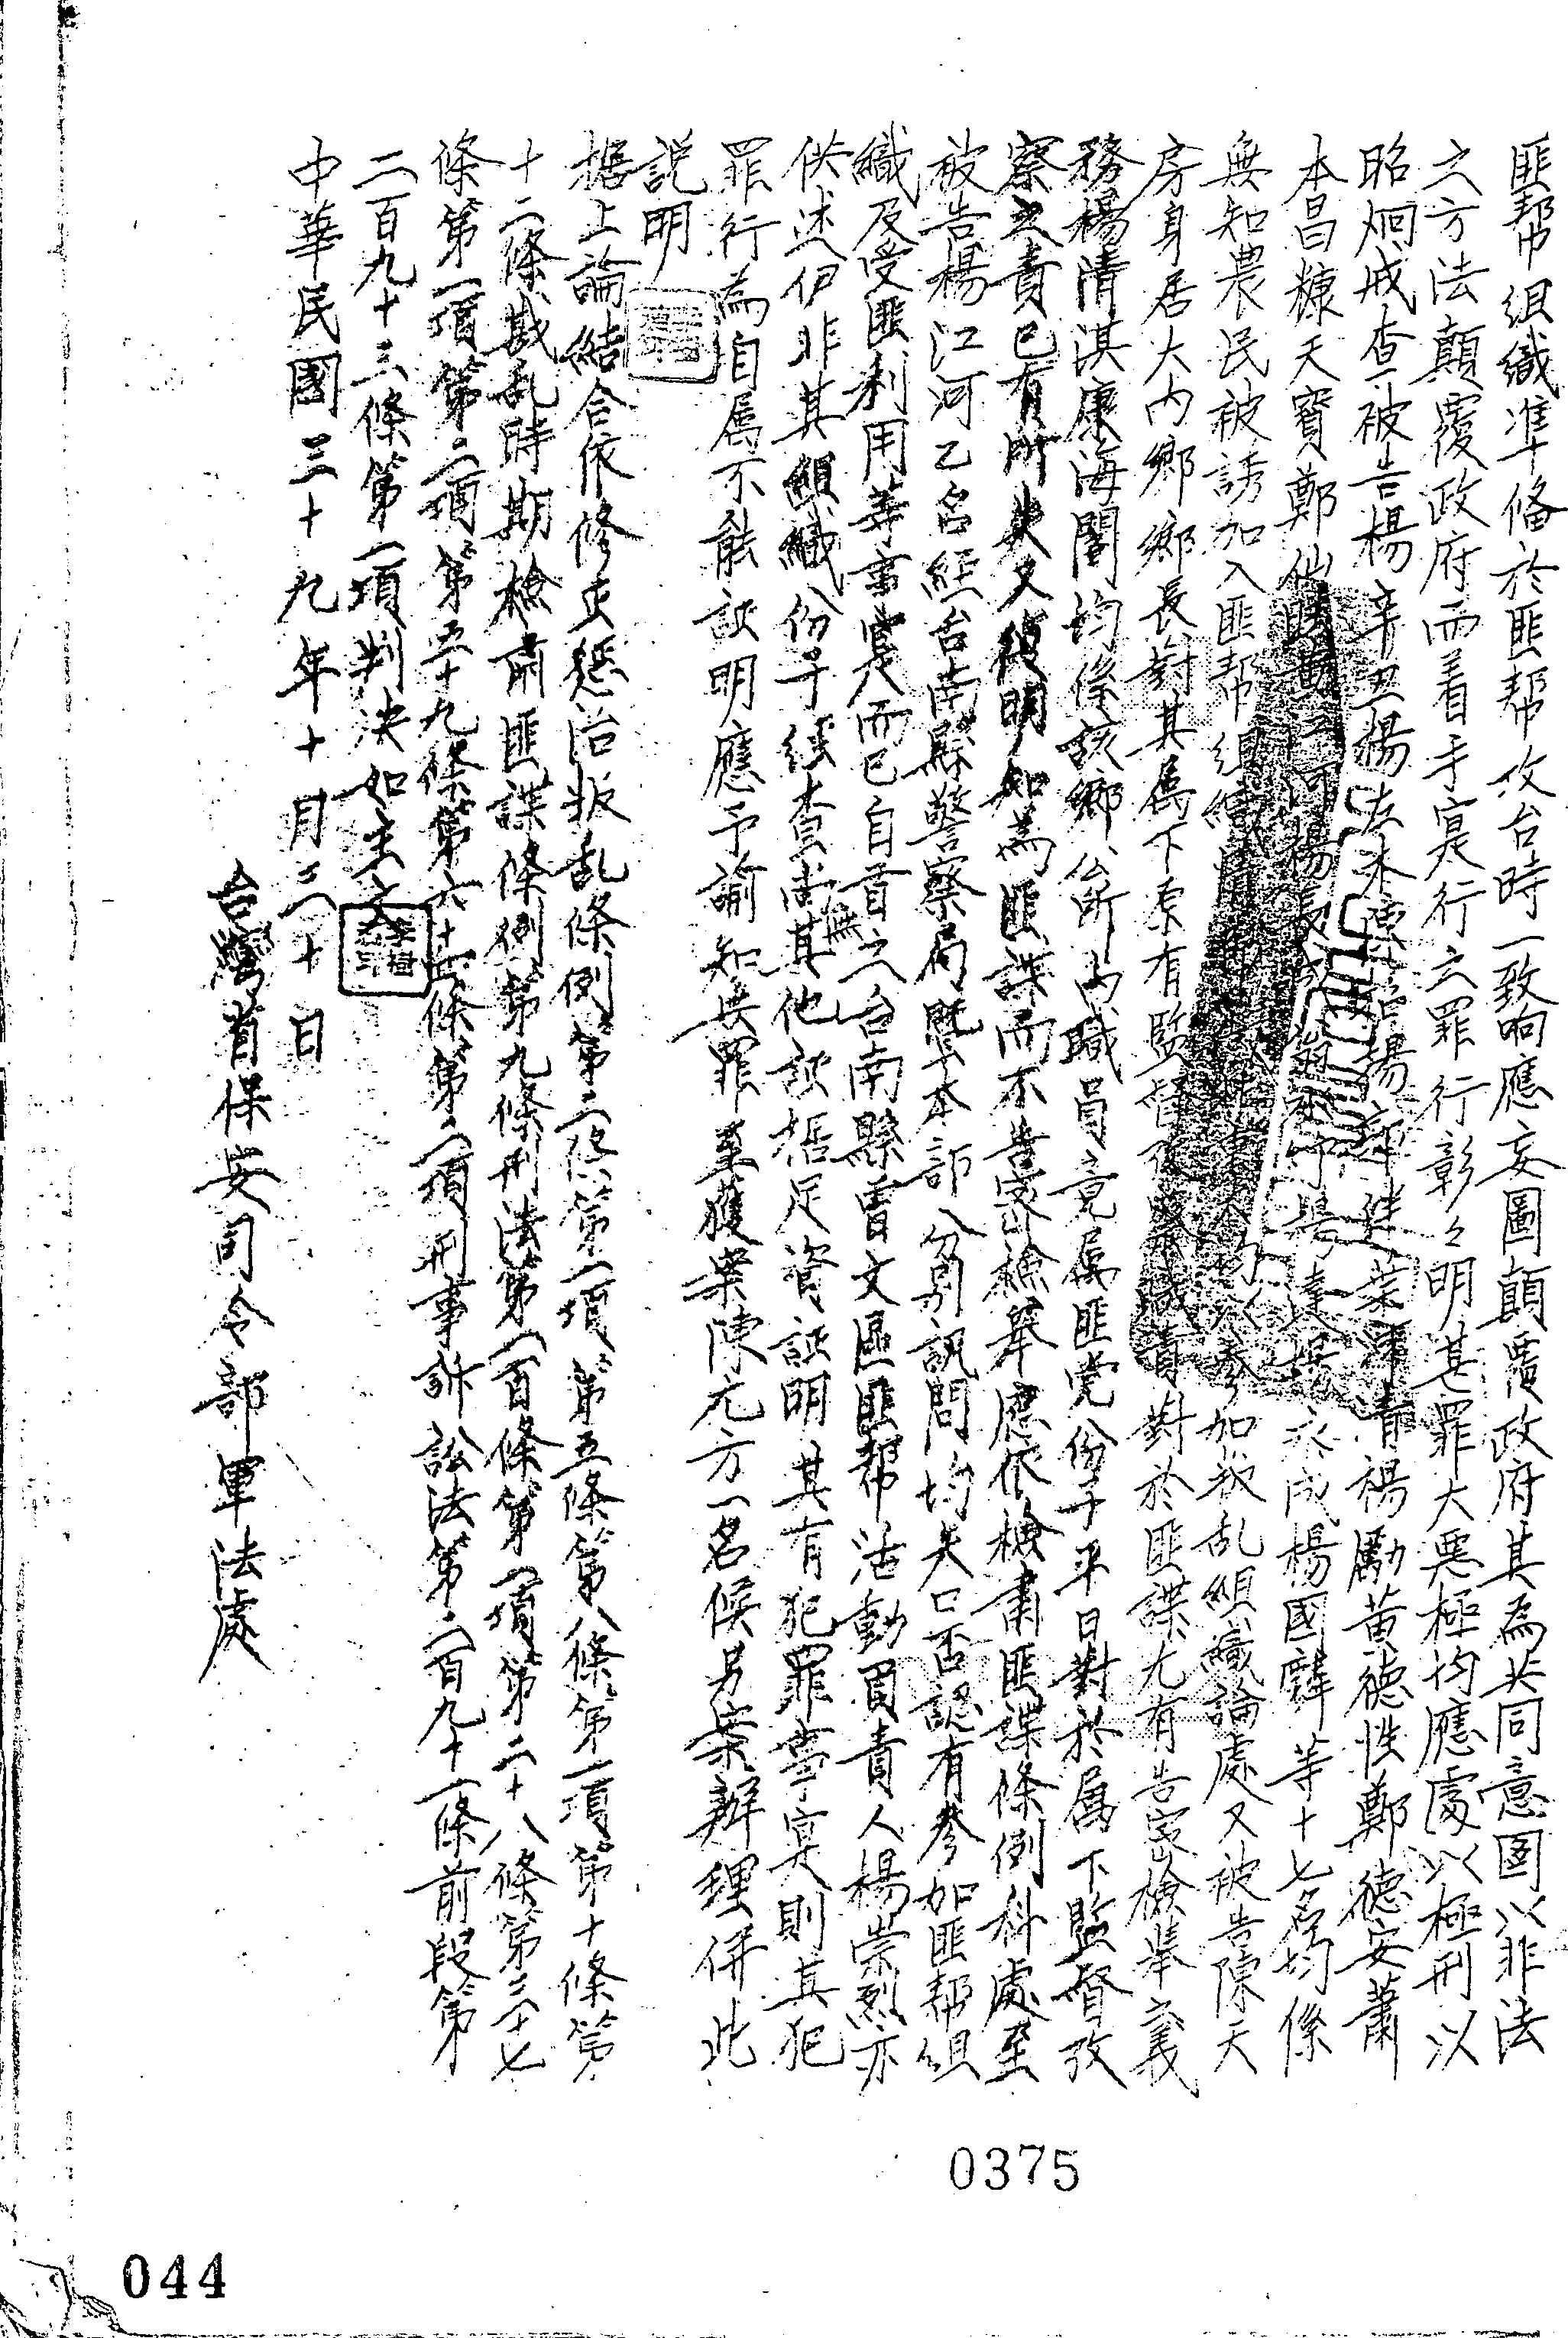 匪帮組織準俻於匪帮攻台時一致响應妄圖顛覆政府其為共同意图以非法
之方法顛覆政府而着手寔行之罪行彰々明甚罪大惡極均應處以極刑以
昭炯戒查被告楊辛丑楊左永楊清 勵黄德性鄭德安蕭
本昌糠天寶鄭仙 江河楊 永成楊國驛等十七名均係
無知農民被誘加入匪帮組織 參加叛乱組織論處又被告陳天
房身居大內鄉鄉長對其属下原有監督 責對於匪諜尤有告密檢舉之義
務楊清淇康海闊均係該鄉公所內職員竟属匪党份子平日對於属下監督攷
察之責已有所失又復明知為匪諜而不告密檢舉應依檢肅匪諜條例科處至
被告楊江河乙名經台南縣警察局曁本部分别訊問均矢口否認有參加匪帮組
織及受匪利用等事寔而已自首之台南縣曾文區匪帮活動負責人楊崇烈亦
供述伊非其組織份子經查尚無其他証据足資証明其有犯罪事寔則其犯
罪行為自属不能証明應予諭知無罪至獲案陳元方一名候另案辦理併此
説明
据上論結合依修正懲治叛乱條例第二條第一項第五條第八條第一項第十條第
十二條戡乱時期檢肅匪諜條例第九條刑法第一百條第一項第二十八條第三十七
條第一項第二項第五十九條第六十四條第二項刑事訴訟法第二百九十一條前段第
二百九十三條第一項判決如主文
中華民國三十九年十月三十日
台灣省保安司令部軍法處
0375
044